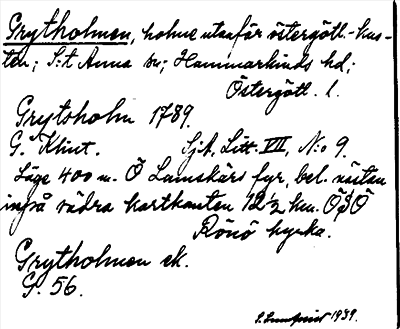 Grytholmen, holme utanför östergötl. kus-
ten; S:t Anna sn; Hammarkinds hd;
Östergötl. l.
Grytsholm 1789.
G. Klint. Sjk. Litt. VII, N:o 9.
Läge 400 m. Ö Lumskärs fyr, bel. nästan
invid södra kartkanten 12 1/2 km. ÖSÖ
Rönö kyrka.
Grytholmen ek.
S. 56.
S. Lundqvist 1939.